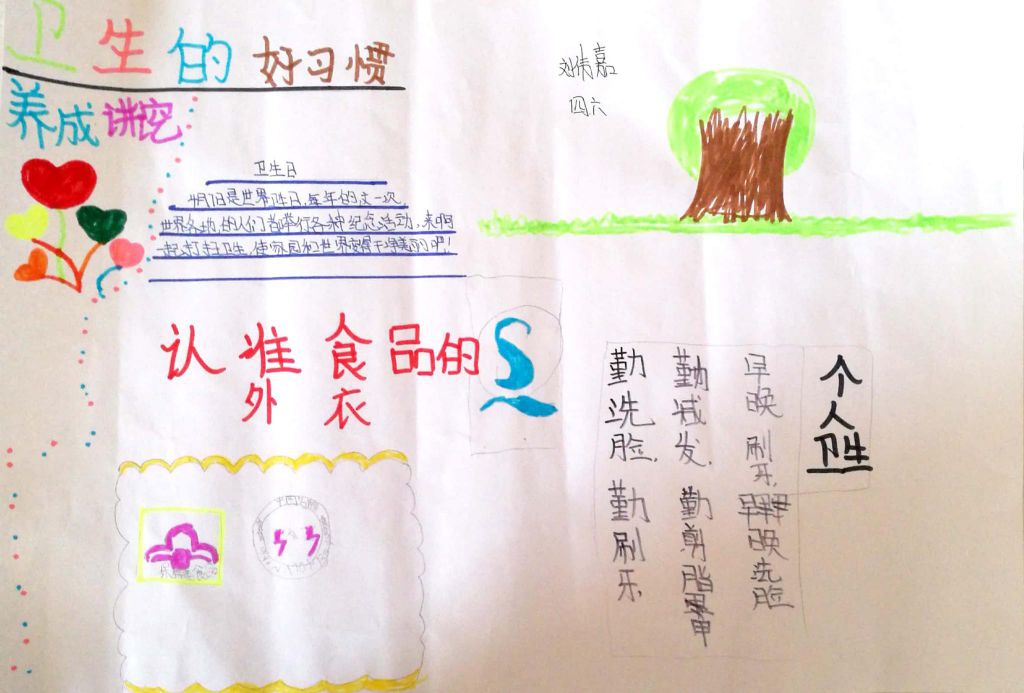 卫生的好习惯
养成讲究
刘倩嘉
四六
卫生日
4月7日是世界卫生日,每年的这一次
世界各地的人们都举行各种纪念活动,来吧
一起打扫卫生,使家园和世界变得干净美丽吧!
认准食品的
外衣
个人卫生
早晚刷牙,早晚洗脸
勤减发,勤剪脂甲
勤洗脸,勤刷牙,